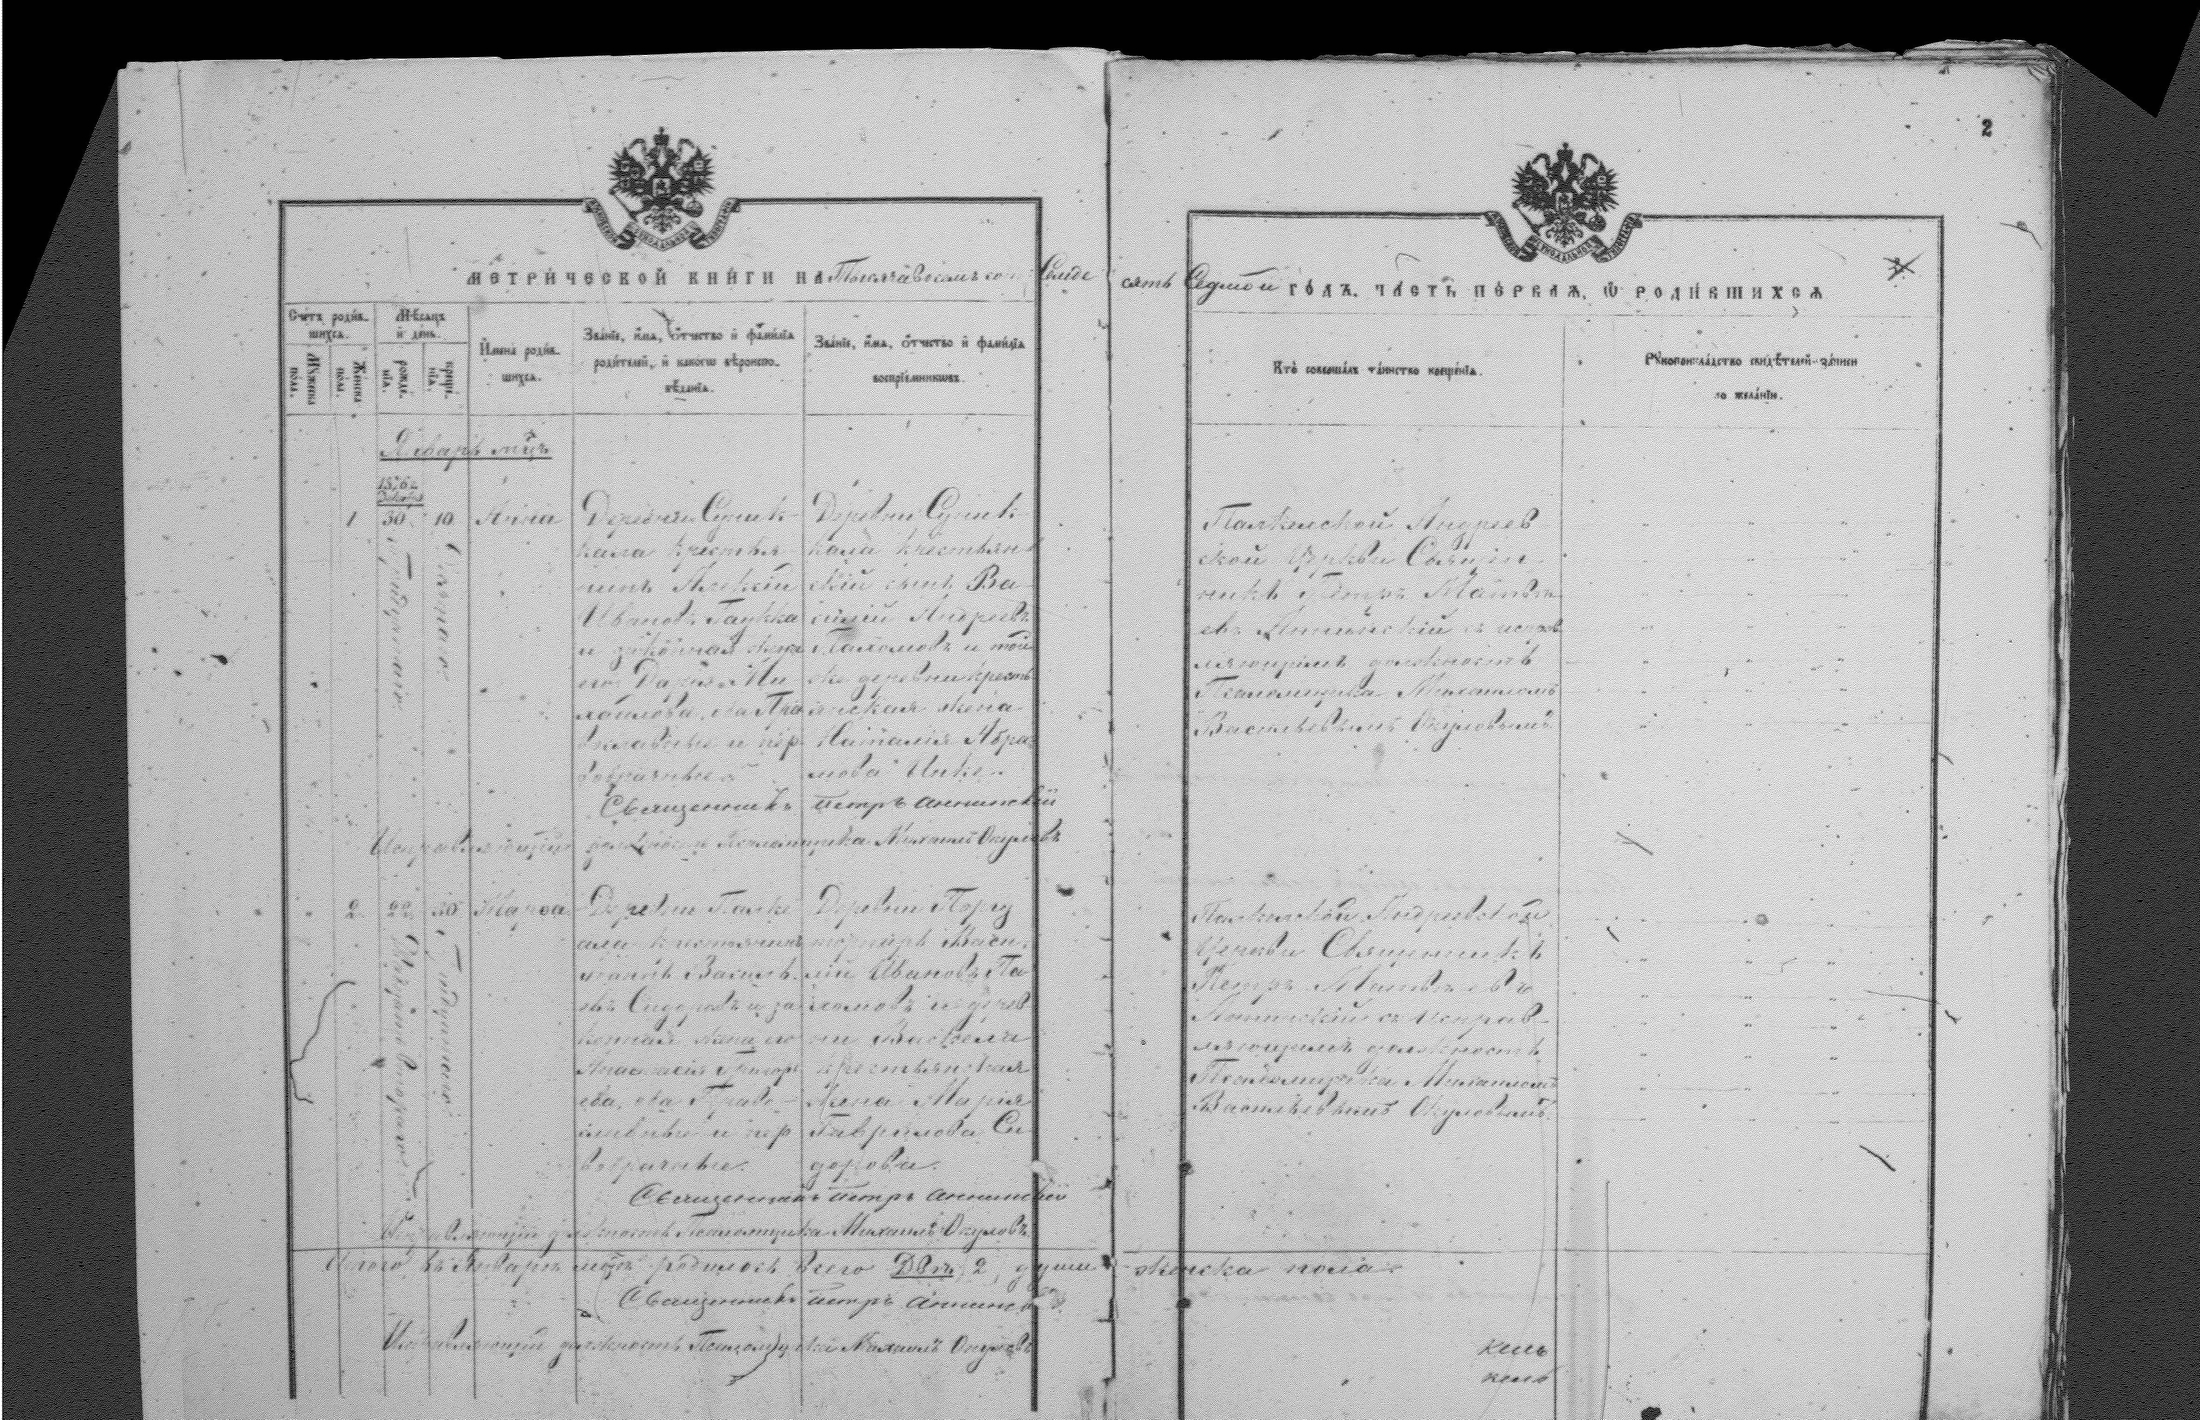 2
МЕТРИЧЕСКОЙ КНИГИ НА Тысяча восемьсот Семьде
сятъ Седмой ГОДЪ, ЧАСТЬ ПЕРВАЯ, Ѡ РОДИВШИХСЯ
Счетъ родив-
шихся.
Мѣсяцъ
и день.
Мужеска
пола.
Женска
пола.
рожде-
нїя.
креще-
нїя.
Имена родив-
шихся.
Званїе, имя, ѻтчество и фамилїа
родителей, и какогѡ вѣроиспо-
вѣданїа.
Званїе, имя, ѻтчество и фамилїа
воспрїемникѡвъ.
Кто совершалъ таинство крещенїа.
Рꙋкоприкладство свидѣтелей записи
по желанїю.
Январь мцъ
1876 г.
Декабря
1 30 10 Анна
Тридцатаго
Десятаго
Деревни Сунк-
кала крестья-
нинъ Алексій
Ивановъ Гаукка
и законная жена
его Дарья Ми-
хайлова, оба Пра-
вославные и пер-
вобрачные.
Деревни Сунк-
кала крестьян-
скій сынъ Ва-
силій Андреевъ
Пахомовъ и той
же деревни кресть-
янская жена
Наталія Абра-
мова
Палкельской Андреев-
ской Церкви Священ-
никъ Петръ Матвѣ-
евъ Аннинскій съ исправ-
ляющимъ должность
Псаломщика Михаиломъ
Васильевымъ Окуловымъ
Священникъ Петръ Аннинскій
Исправляющій должность Псаломщика Михаилъ Окуловъ
2 22 30 Марѳа
Двадцать втораго
Тридцатаго
Деревни Палке-
ала крестьянинъ
Василь-
евъ Сидоровъ и за-
конная жена его
Анастасія Григорь-
ева, оба Право-
славные и пер-
вобрачные.
Деревни
Васи-
лій Ивановъ Па-
хомовъ и дерев-
ни
крестьянская
жена Марія
Гаврилова Си-
дорова.
Палкельской Андреевской
Церкви Священникъ
Петръ Матвѣевъ
Аннинскій съ исправ-
ляющимъ должность
Псаломщика Михаиломъ
Васильевымъ Окуловымъ.
Священникъ Петръ Аннинскій
Исправляющій должность Псаломщика Михаилъ Окуловъ
Итого въ Январѣ мцѣ родилось всего Двѣ, 2, души женска пола
Священникъ Петръ Аннинскій
Исправляющій должность Псаломщика Михаилъ Окуловъ